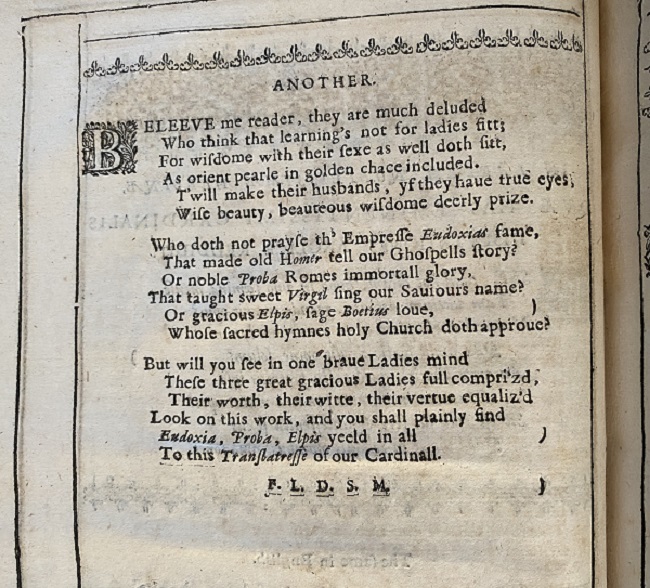 ANOTHER.
BELEEVE me reader, they are much deluded
Who think that learning's not for ladies fitt;
For wiſdome with their ſexe as well doth ſitt,
As orient pearle in golden chace included.
T'will make their husbands, yf they haue true eyes,
Wiſe beauty, beauteous wiſdome deerly prize.
Who doth not prayſe th' Empreſſe Eudoxias fame,
That made old Homer tell our Ghoſpells ſtory?
Or noble Proba Romes immortall glory,
That taught sweet Virgil ſing our Sauiours name?
Or gracious Elpis, ſage Boetius loue, )
Whoſe ſacred hymnes holy Church doth approue?
But will you ſee in one braue Ladies mind
Theſe three great gracious Ladies full compri'zd,
Their worth, their witte, their vertue equaliz'd
Look on this work, and you shall plainly find
Eudoxia, Proba, Elpis yeeld in all )
To this Tranſlatreſſe of our Cardinall.
F. L. D. S. M. )